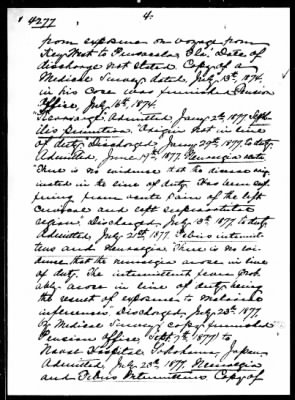 4277
4.
from exposure on voyage from
Key West to Pensacola, Fla. Date of
discharge not stated. Copy of a
Medical Survey dated, July 13th, 1874,
in his case was furnished Pension
Office, July 16th, 1874.
Admitted Jany 2nd 1877
Origin not in line
of duty. Discharged, Jany 29th, 1877, to duty.
Admitted, June 19th, 1877, Neuralgia
There is no evidence that the disease orig-
inated in the line of duty. Has been suf-
fering from acute pain of the left
and left
region. Discharged, July 13th, 1877 to duty.
Admitted, July 21st, 1877, Febris intermit-
tens and Neuralgia. There is no evi-
dence that the neuralgia arose in line
of duty. The intermittent fever prob-
ably arose in line of duty, being
the result of exposure to malarial
influences. Discharged, July 23rd, 1877
by Medical Survey (copy furnished
Pension Office, Sept. 7th, 1877) to
Naval Hospital, Yokohama, Japan.
Admitted, July 23rd, 1877, Neuralgia
and Febris Intermittens. Copy of